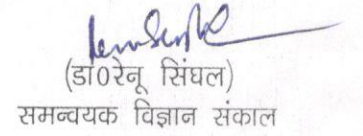 (डा0रेनू सिंघल)
समन्वयक विज्ञान संकाल